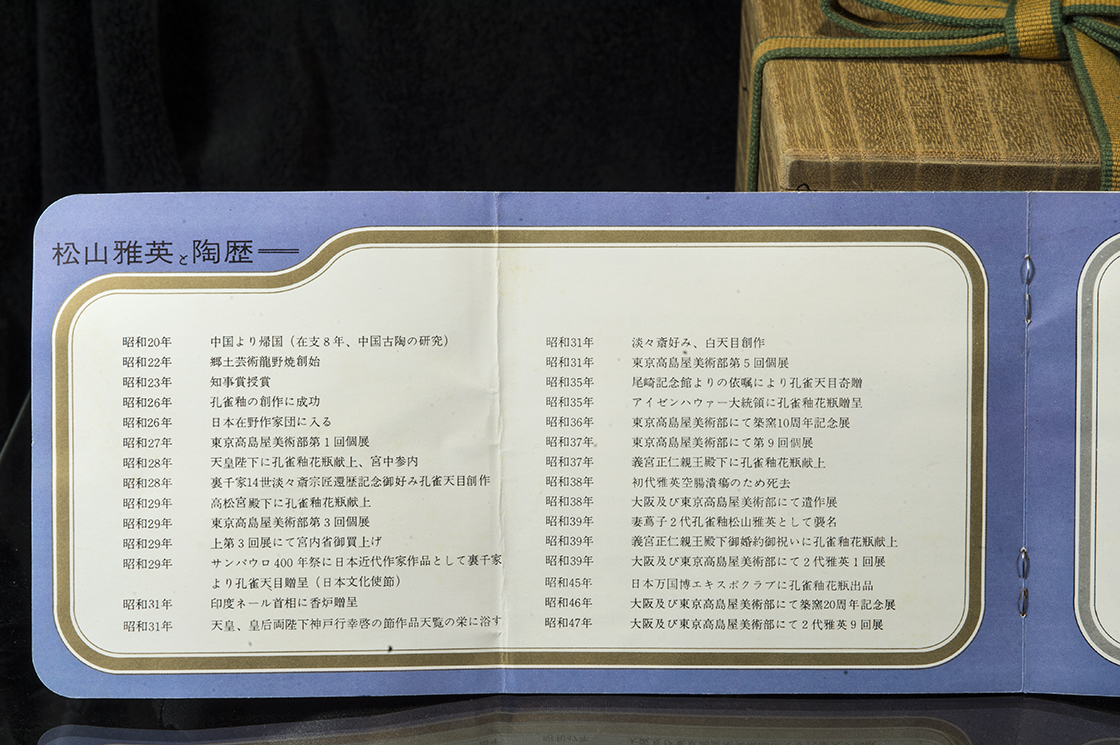 松山雅英と陶歴
昭和20年 中国より帰国(在支8年、中国古陶の研究)
昭和22年 郷土芸術龍野焼創始
昭和23年 知事賞授賞
昭和26年 孔雀釉の創作に成功
昭和26年 日本在野作家団に入る
昭和27年 東京高島屋美術部第1回個展
昭和28年 天皇陛下に孔雀釉花瓶献上、宮中参内
昭和28年 裏千家14世淡々斎宗匠還歴記念御好み孔雀天目創作
昭和29年 高松宮殿下に孔雀釉花瓶献上
昭和29年 東京高島屋美術部第3回個展
昭和29年 上第3回展にて宮内省御買上げ
昭和29年 サンパウロ400年祭に日本近代作家作品として裏千家
より孔雀天目贈呈(日本文化使節)
昭和31年 印度ネール首相に香炉贈呈
昭和31年 天皇、皇后両陛下神戸行幸啓の節作品天覧の栄に浴す
昭和31年 淡々斎好み、白天目創作
昭和31年 東京高島屋美術部第5回個展
昭和35年 尾崎記念館よりの依嘱により孔雀天目寄贈
昭和35年 アイゼンハウァー大統領に孔雀釉花瓶贈呈
昭和36年 東京高島屋美術部にて築窯10周年記念展
昭和37年 東京高島屋美術部にて第9回個展
昭和37年 義宮正仁親王殿下に孔雀釉花瓶献上
昭和38年 初代雅英空腸潰瘍のため死去
昭和38年 大阪及び東京高島屋美術部にて遺作展
昭和39年 妻蔦子2代孔雀釉松山雅英として襲名
昭和39年 義宮正仁親王殿下御婚約御祝いに孔雀釉花瓶献上
昭和39年 大阪及び東京高島屋美術部にて2代雅英1回展
昭和45年 日本万国博エキスポクラブに孔雀釉花瓶出品
昭和46年 大阪及び東京高島屋美術部にて築窯20周年記念展
昭和47年 大阪及び東京高島屋美術部にて2代雅英9回展